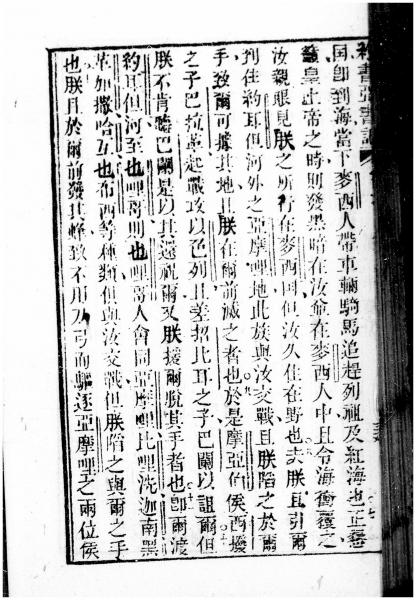 約書亞書記
國卽到海當下麥西人帶車輛騎馬追趕列祖及紅海也七正懇
籲皇上帝之時則發黑暗在汝侖在麥西人中且令海衝覆之
汝親眼見朕之所行在麥西國但汝久住在野也八夫朕且引爾
到住約耳但河外之亞摩哩地此族與汝交戰且朕陷之於爾
手致爾可據其地且朕在爾前滅之者也九於是摩亞的侯西撥
之子巴拉革起戰攻以色列且差招比耳之子巴闌以詛爾十但
朕不肯聽巴闌是以其還祝爾又朕援爾脫其手者也十一卽爾渡
約耳但河至也哩哥則也哩哥人會同亞摩哩比哩洗迦南黑
革加撒哈互也布西等種類但與汝交戰但朕陷之與爾之手
也十二朕且於爾前發其蜂致不用刀弓而驅逐亞摩哩之兩位侯